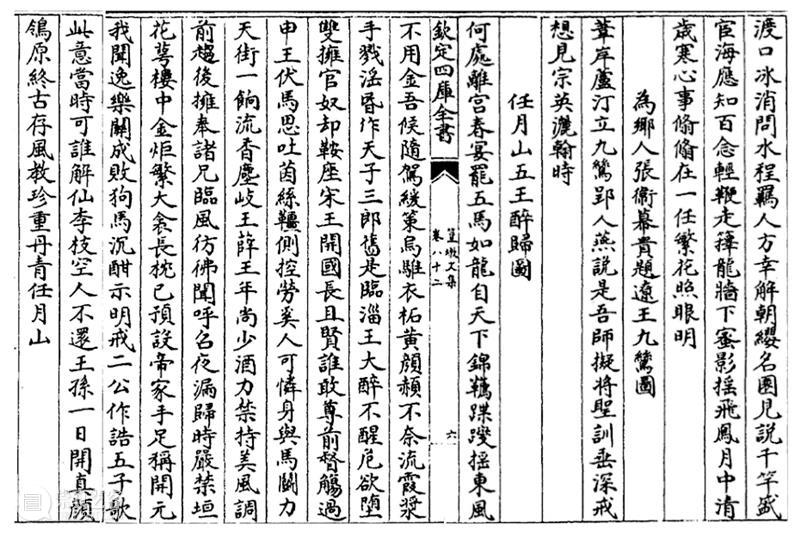 渡口冰消問水程羈人方幸解朝纓名園見說千竿盛
宦海應知百念輕鞭走籜龍牆下蜜影揺飛鳳月中清
歲寒心事偹偹在一任繁花照眼明
為鄉人張衛幕貴題遼王九鷥圖
葦岸蘆汀立九鷥郢人燕說是吾師擬將聖訓垂深戒
想見宗英灑翰時
任月山五王醉歸圖
何處離宮春宴罷五馬如龍自天下錦韉蹀躞揺東風
欽定四庫全書
篁墩文集
卷八十二
六
不用金吾候隨駕緩策烏騅衣柘黄顔赬不奈流霞漿
手戮淫昏作天子三郎舊是臨淄王大醉不醒危欲墮
雙擁官奴却鞍座宋王開國長且賢誰敢尊前督觴過
申王伏馬思吐茵絲韁側控勞奚人可憐身與馬鬭力
天街一餉流香塵岐王薛王年尚少酒力禁持美風調
前趨後擁奉諸兄臨風彷彿聞呼召夜漏歸時嚴禁垣
花萼樓中金炬繁大衾長枕已預設帝家手足稱開元
我聞逸樂關成敗狗馬沉酣示明戒二公作誥五子歌
此意當時可誰解仙李枝空人不還王孫一日開真顔
鴒原終古存風教珍重丹青任月山